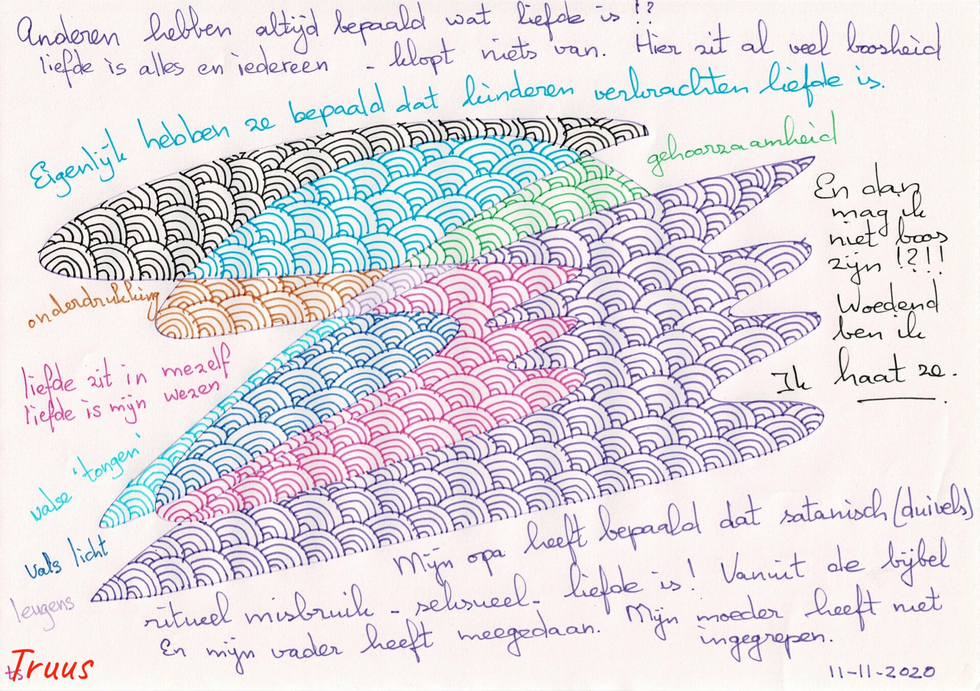 Anderen hebben altijd bepaald wat liefde is !?
liefde is alles en iedereen - klopt niets van. Hier zit al veel boosheid
Eigenlijk hebben ze bepaald dat kinderen verkrachten liefde is.
gehoorzaamheid
En dan
mag ik
niet boos
zijn !?!!
Woedend
ben ik
Ik haat ze.
onderdrukking
liefde zit in mezelf
liefde is mijn wezen
valse 'tongen'
vals licht
leugens
Mijn opa heeft bepaald dat satanisch (duivels)
ritueel misbruik - seksueel - liefde is! Vanuit de bijbel
En mijn vader heeft meegedaan. Mijn moeder heeft niet
ingegrepen.
ts Truus
11-11-2020